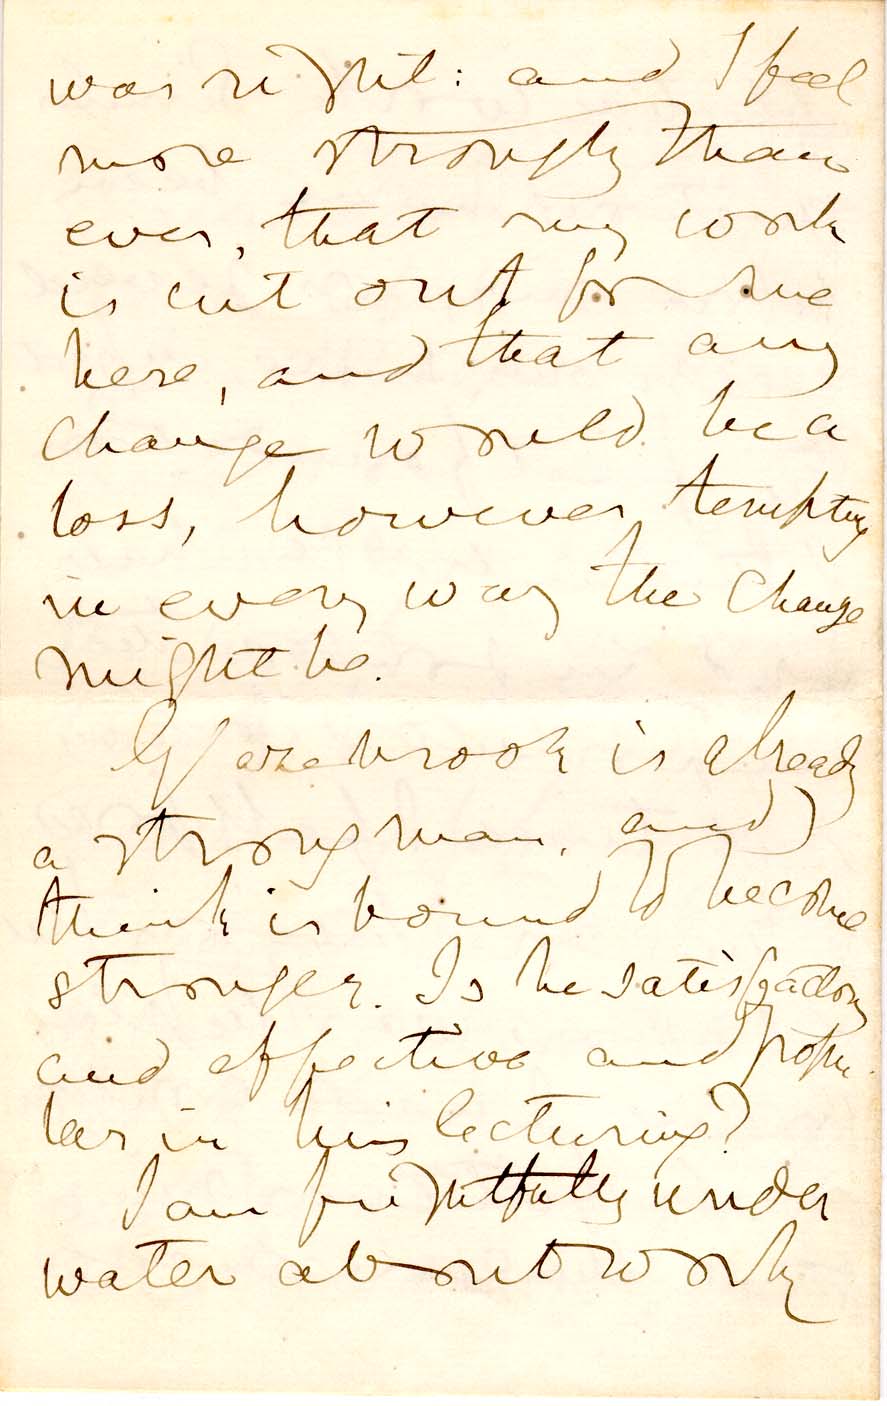 was right: and I feel
more strongly than
ever, that my work
is cut out for me
here, and that any
change would be a
loss, however tempting
in every way the change
might be.
Glazebrook is already
a strong man, and I
think is bound to become
stronger. Is he satisfactory
and effective and popu
lar in his lecturing?
I am frightfully under
water about work